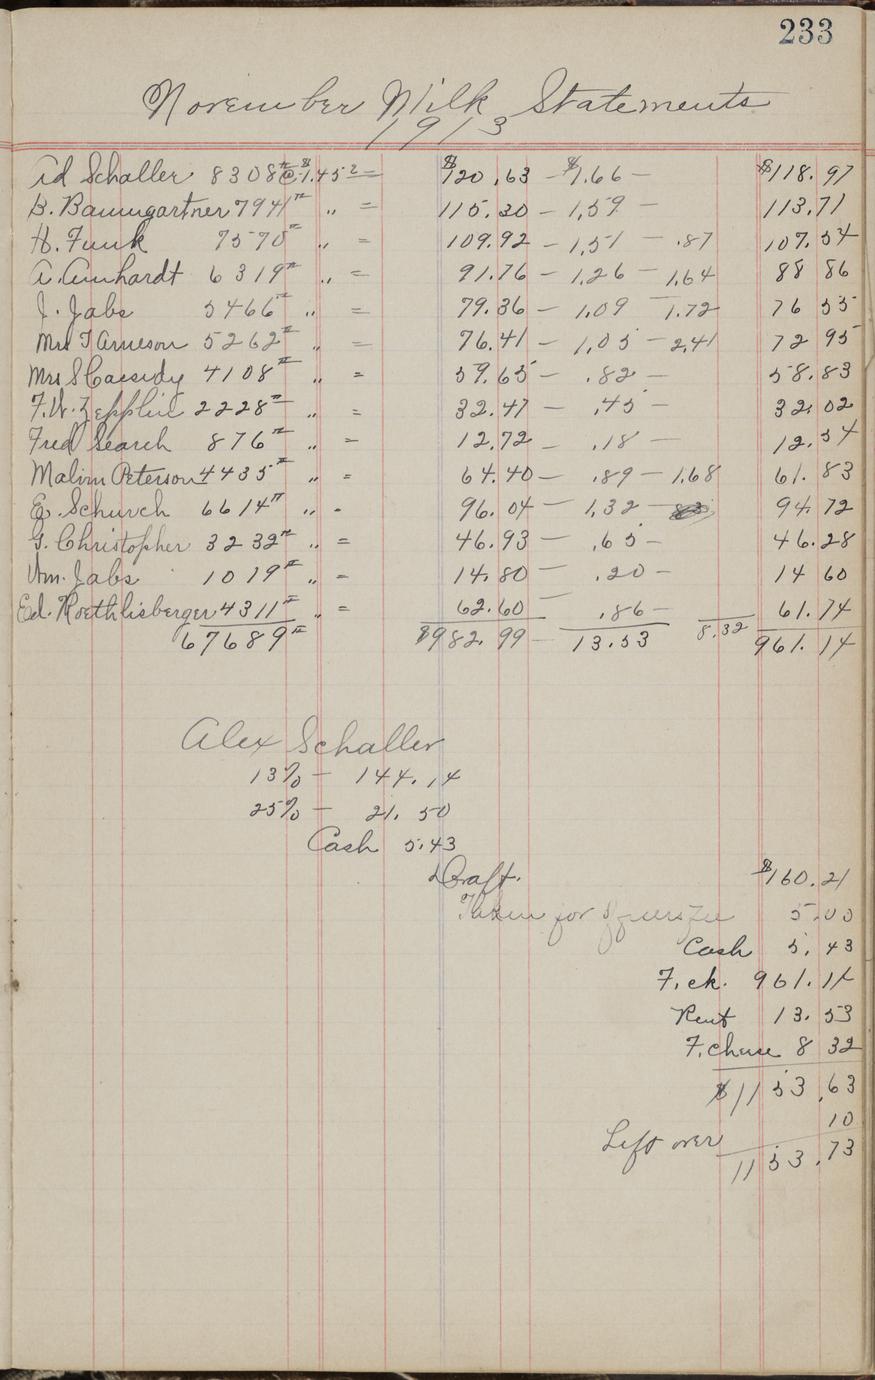 233
November Milk Statements
1913
Ad Schaller 8308# @ $1.45 2 = $120.63 - $1.66 - $118.97
B. Baumgartner 7941# " = 115.30 - 1.59 - 113.71
H. Funk 7570# " = 109.92 - 1.51 - .87 107.54
A. Amhardt 6319# " = 91.76 - 1.26 - 1.64 88 86
J. Jabs 5466# " = 79.36 - 1.09 - 1.72 76 55
Mrs T Arneson 5262# " = 76.41 - 1.05 - 2.41 72 95
Mrs S Cassidy 4108# " = 59.65 - .82 - 58.83
F.W. Zepplin 2228# " = 32.47 - .45 - 32.02
Fred Search 876# " = 12.72 - .18 - 12.54
Malvin Peterson 4435# " = 64.40 - .89 - 1.68 61.83
E. Schurch 6614# " = 96.04 - 1.32 - 94.72
G. Christopher 3232# " = 46.93 - .65 - 46.28
Wm. Jabs 1019# " = 14.80 - .20 - 14 60
Ed. Roethlisberger 4311# " = 62.60 - .86 - 61.74
67689# $982.99 - 13.53 8.32 961.14
Alex Schaller
13% - 144.14
25% - 21.50
Cash 5.43
Draft. $160.21
Taken for 5.00
Cash 5.43
F. ck. 961.14
Rent 13.53
F. chese 8 32
$1153.63
10
Left over
1153.73